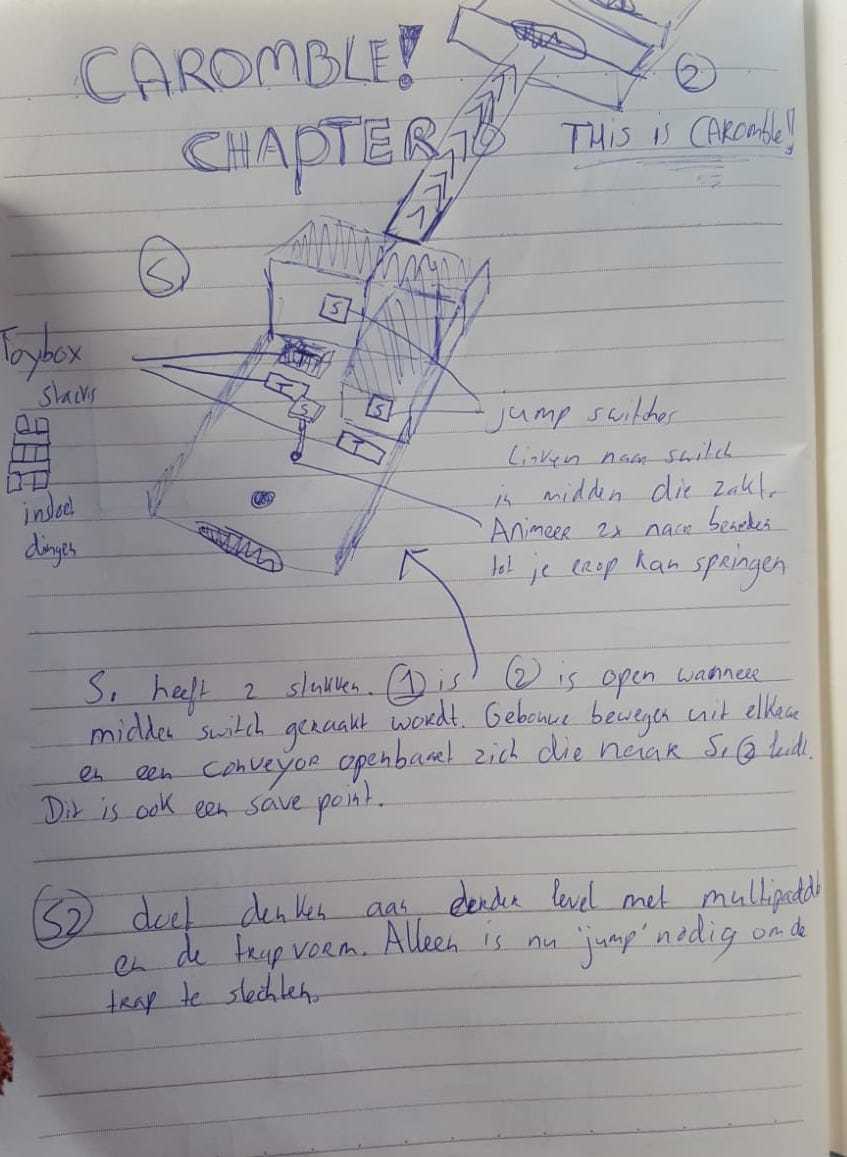 CAROMBLE!
CHAPTER 6
2
THIS is CAROMBLE!
S1
S
Toybox
stacks
T
S
S
T
indoet
dingen
jump switches
linken naar switch
in midden die zakt.
Animeer 2x naar beneden
tot je erop kan springen
S1 heeft 2 stukken. 1 is 2 is open wanneer
midden switch geraakt wordt. Gebouwen bewegen uit elkaar
en een conveyor openbaart zich die naar S1 2 leidt.
Dit is ook een save point.
S2 doet denken aan eerder level met multipaddle
en de trapvorm. Alleen is nu 'jump' nodig om de
trap te slechten.